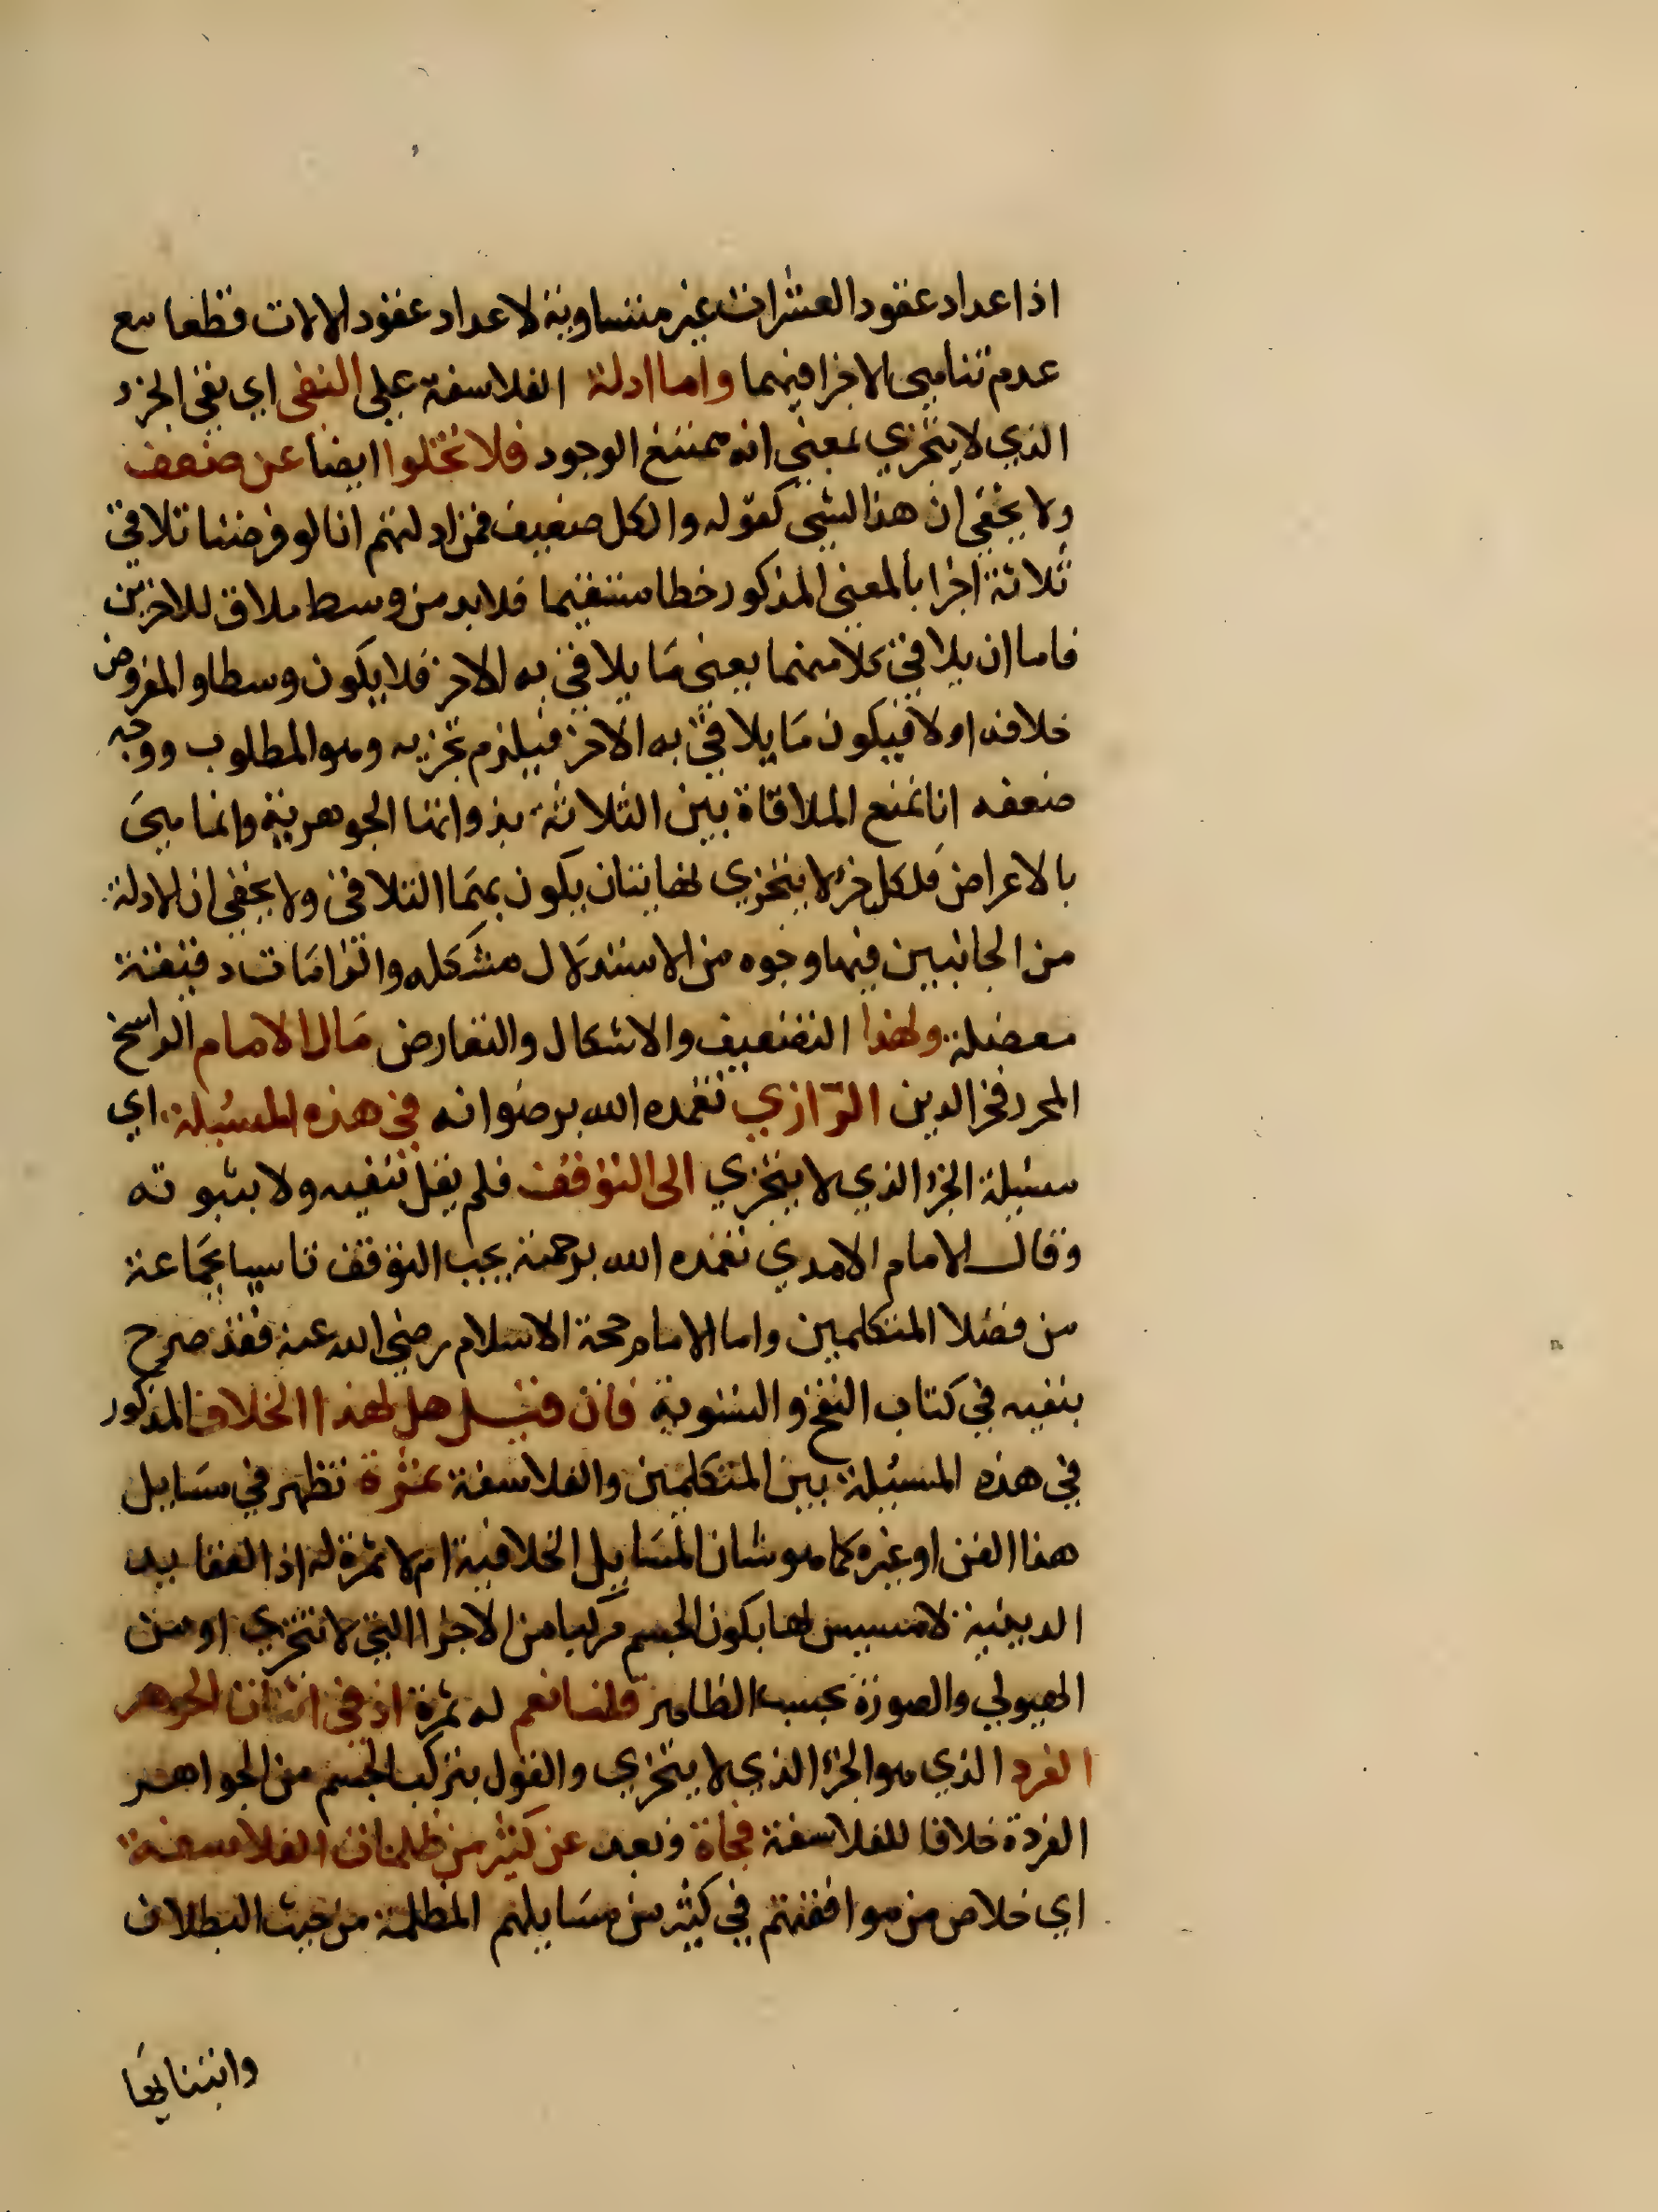 اذ اعداد عقود العشرات غير متساوية لاعداد عقود الالات قطعا مع
عدم تناهي الاجزا فيهما واما ادلة الفلاسفة على النفي اي نفي الجزء
الذي لا يتجزي بمعنى انه ممتنع الوجود فلا تخلوا ايضا عن ضعف
ولا يخفى ان هذا ليس كقوله والكل ضعيف فمن ادلتهم انا لو فرضنا تلاقي
ثلاثة اجزا بالمعنى المذكور خطا مستقيما فلابد من وسط ملاق للاخرين
فاما ان يلاقي كلا منهما بعين ما يلاقي به الاخر فلا يكون وسطا والمفروض
خلافه اولا فيكون ما يلاقي به الاخر فيلزم تجزيه وهو المطلوب ووجه
ضعفه انا نمنع الملاقاة بين الثلاثة بذواتها الجوهرية وانما هي
بالاعراض فلكل جزء لا يتجزي نهايتان يكون بهما التلاقي ولا يخفى ان الادلة
من الجانبين فيها وجوه من الاستدلال مشكله والزامات دقيقة
معضلة ولهذا التضعيف والاشكال والتعارض مال الامام الراسخ
المحرر فخر الدين الرازي تغمده الله برضوانه في هذه المسئلة اي
مسئلة الجزء الذي لا يتجزي الى التوقف فلم يقل بنفيه ولا بثبوته
وقال الامام الامدي تغمده الله برحمته يجب التوقف تاسيا بجماعة
من فضلا المتكلمين واما الامام حجة الاسلام رضي الله عنه فقد صرح
بنفيه في كتاب النفخ والتسوية فان قيل هل لهذا الخلاف المذكور
في هذه المسئلة بين المتكلمين والفلاسفة ثمرة تظهر في مسايل
هذا الفن او غيره كما هو شان المسايل الخلافية ام لا ثمرة له اذ العقايد
الدينية لا مسيس لها بكون الجسم مركبا من الاجزا التي لا تتجزي او من
الهيولي والصورة بحسب الظاهر قلنا نعم له ثمرة اذ في اثبات الجوهر
الفرد الذي هو الجزء الذي لا يتجزي والقول بتركب الجسم من الجواهر
الفردة خلافا للفلاسفة نجاة وبعد عن كثير من ظلمات الفلاسفة
اي خلاص من موافقتهم في كثير من مسايلهم المظلمة من حيث البطلان
وابتنايها